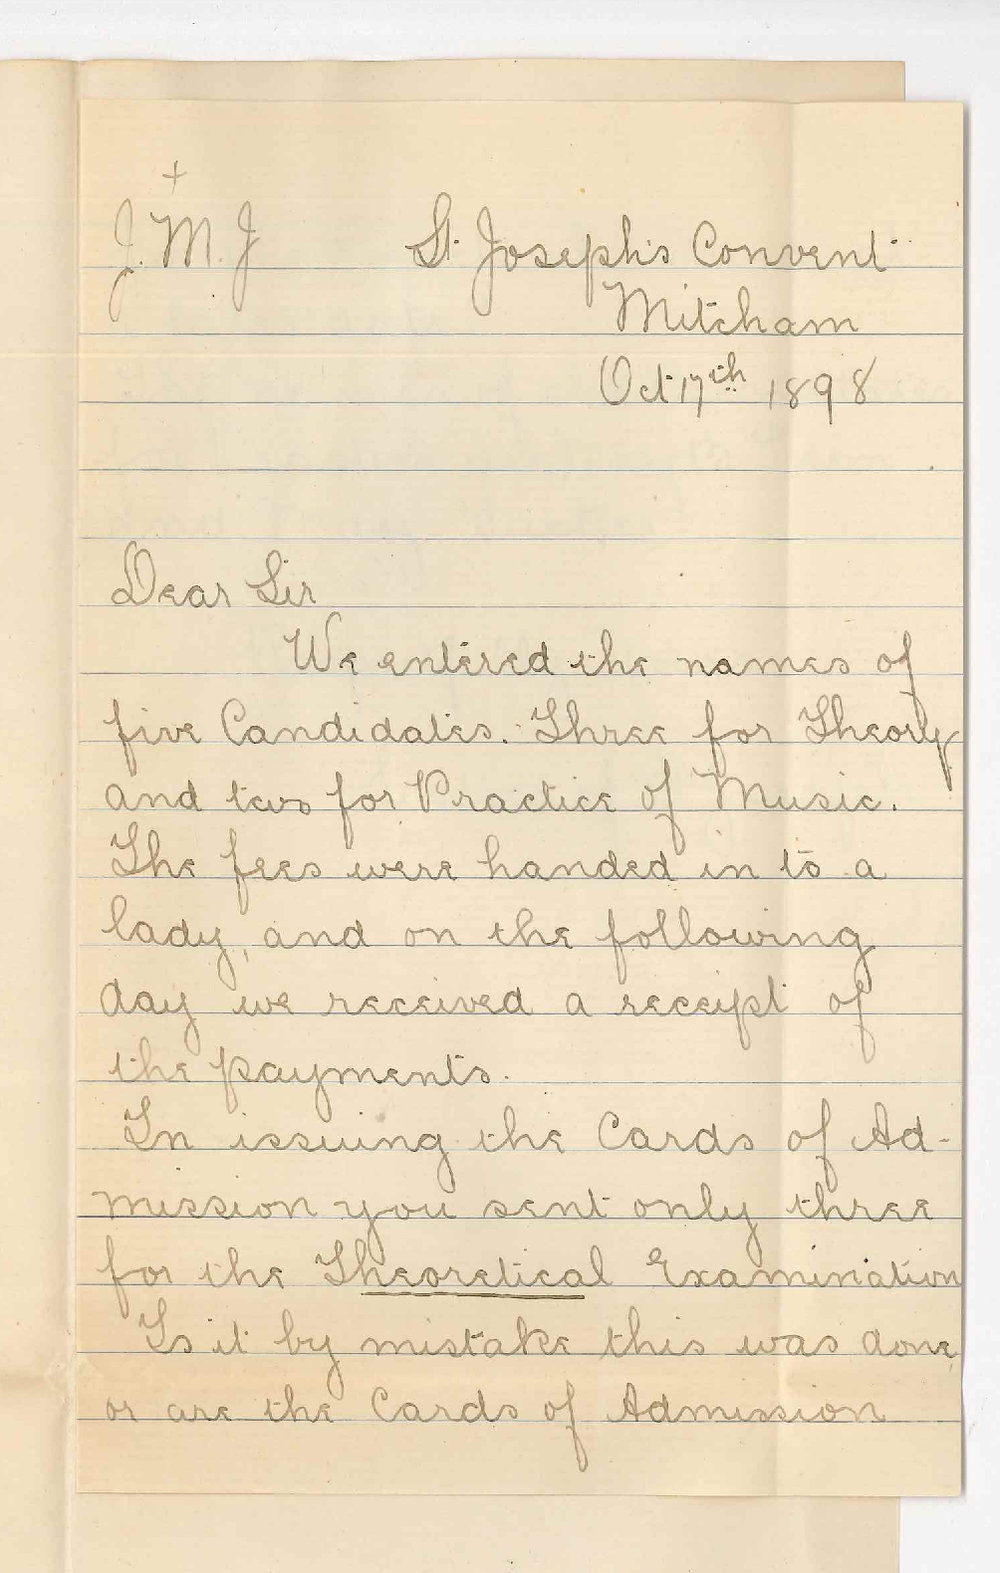 +
J. M. J St. Joseph's Convent
Mitcham
Oct 17th 1898
Dear Sir
We entered the names of
five Candidates. Three for Theory
and two for Practice of Music.
The fees were handed in to a
lady, and on the following
day we received a receipt of
the payments.
In issuing the Cards of Ad-
mission you sent only three
for the Theoretical Examination
Is it by mistake this was done,
or are the Cards of Admission